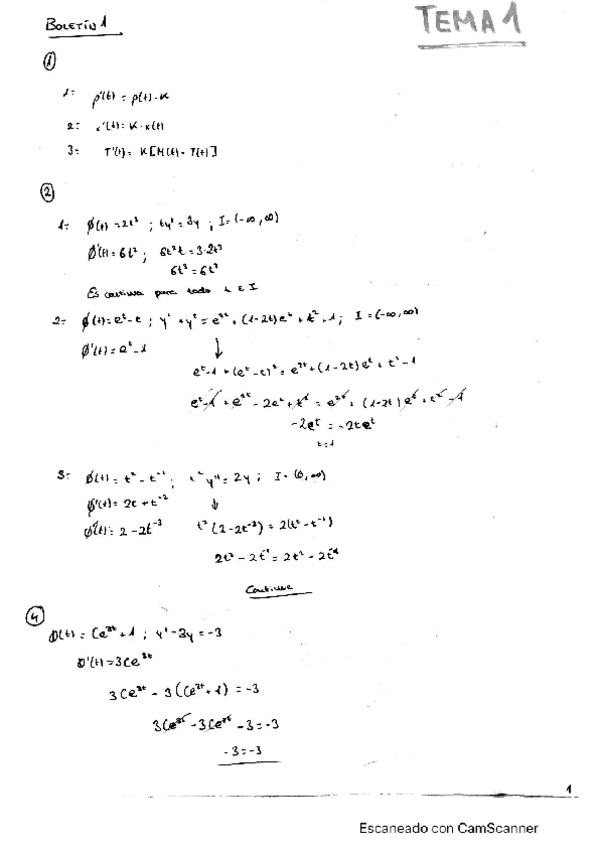 BOLETÍN 1
TEMA 1
①
1: p'(t) = p(t) · K
2: x'(t) = K · x(t)
3: T'(t) = K [M(t) - T(t)]
②
1: ϕ(t) = 2t³ ; ty' = 3y ; I = (-∞, ∞)
ϕ'(t) = 6t² ; 6t²t = 3·2t³
6t³ = 6t³
Es continua para todo t ∈ I
2: ϕ(t) = eᵗ - t ; y' + y² = e²ᵗ + (1-2t)eᵗ + t² - 1 ; I = (-∞, ∞)
ϕ'(t) = eᵗ - 1 ↓
eᵗ - 1 + (eᵗ - t)² = e²ᵗ + (1-2t)eᵗ + t² - 1
eᵗ - 1 + e²ᵗ - 2eᵗ + t² = e²ᵗ + (1-2t)eᵗ + t² - 1
-2eᵗ = -2teᵗ
t = 1
3: ϕ(t) = t² - t⁻¹ ; t² y'' = 2y ; I = (0, ∞)
ϕ'(t) = 2t + t⁻² ↓
ϕ''(t) = 2 - 2t⁻³ t² (2 - 2t⁻³) = 2(t² - t⁻¹)
2t² - 2t⁻¹ = 2t² - 2t⁻¹
Continua
④
ϕ(t) = Ce³ᵗ + 1 ; y' - 3y = -3
ϕ'(t) = 3Ce³ᵗ
3Ce³ᵗ - 3(Ce³ᵗ + 1) = -3
3Ce³ᵗ - 3Ce³ᵗ - 3 = -3
-3 = -3
1
Escaneado con CamScanner